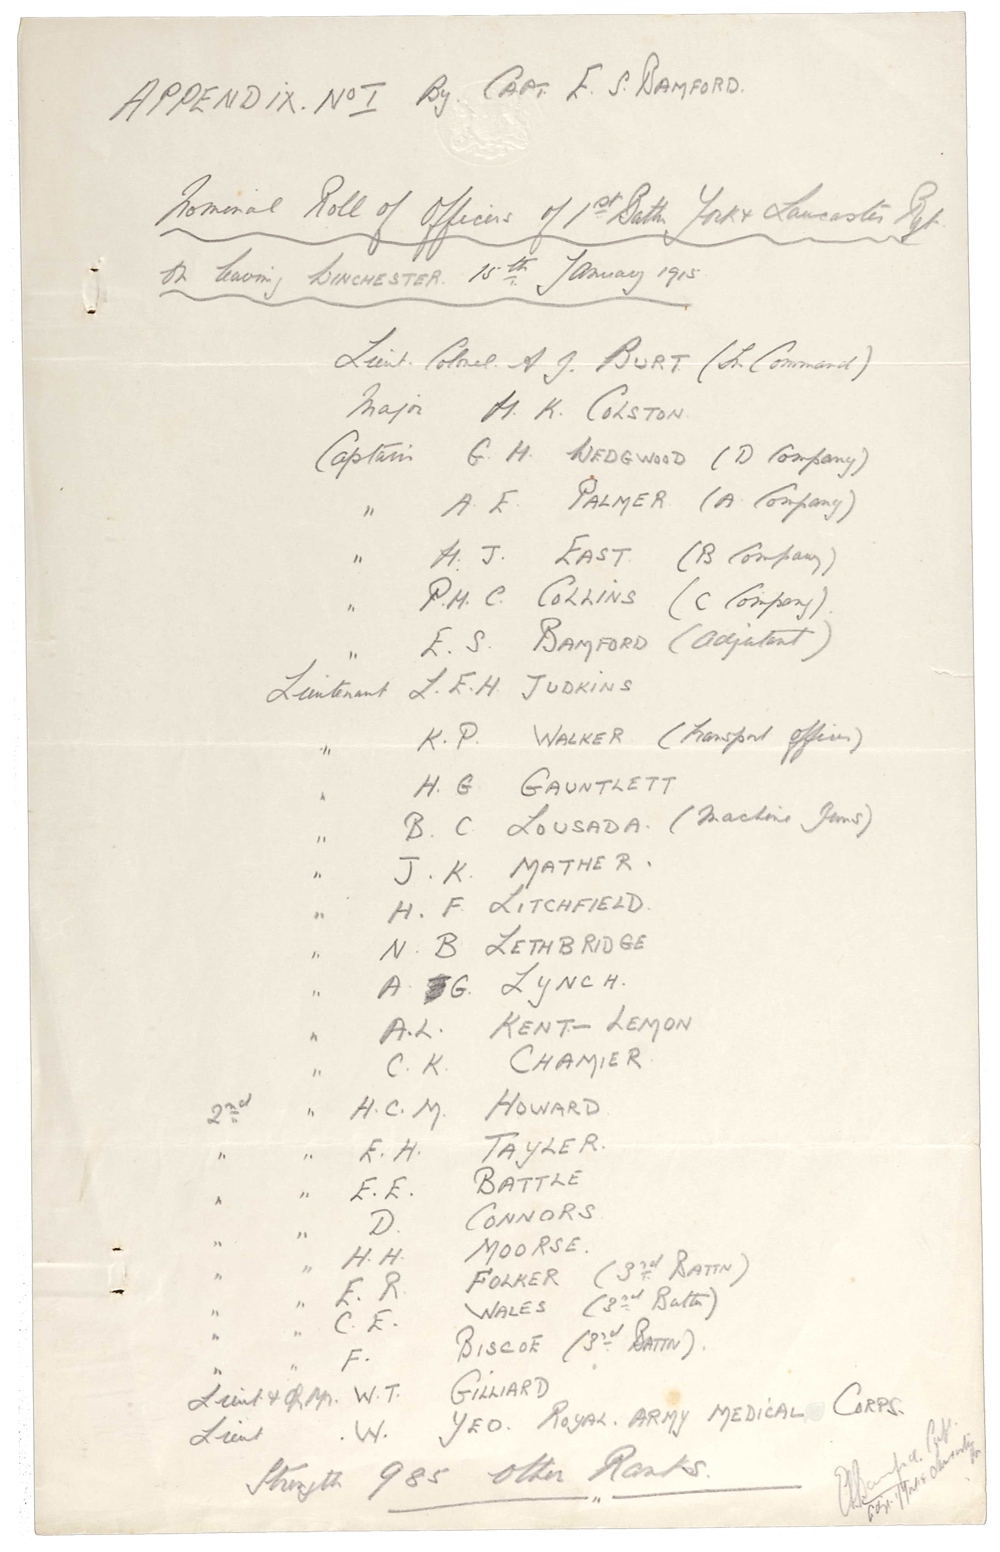 APPENDIX. No I By. CAPT. E. S. BAMFORD.
Nominal Roll of Officers of 1st Battn York & Lancaster Rgt.
on leaving WINCHESTER. 15th January 1915
Lieut. Colonel. A J. BURT (In Command)
Major H. K. COLSTON
Captain G. H. WEDGWOOD (D Company)
" A. E. PALMER (A Company)
" H. J. EAST. (B Company)
" P.H.C. COLLINS (C Company).
" E. S. BAMFORD (Adjutant)
Lieutenant L.E.H. JUDKINS
" K.P. WALKER (Transport officer)
" H. G GAUNTLETT
" B. C. LOUSADA. (Machine Guns)
" J.K. MATHER.
" H. F LITCHFIELD.
" N. B LETHBRIDGE
" A G. LYNCH.
" A.L. KENT-LEMON
" C.K. CHAMIER.
2nd " H.C.M. HOWARD
" " E.H. TAYLER.
" " E.E. BATTLE
" " D. CONNORS
" " H.H. MOORSE.
" " E. R. FOLKER (3rd BATTN)
" " C. E. WALES (3rd Battn)
" " F. BISCOE (3rd BATTN).
Lieut & Q.Mr. W.T. GILLIARD
Lieut .W. YEO. ROYAL. ARMY MEDICAL CORPS.
Strength 985 other Ranks.
Bamford. Capt.